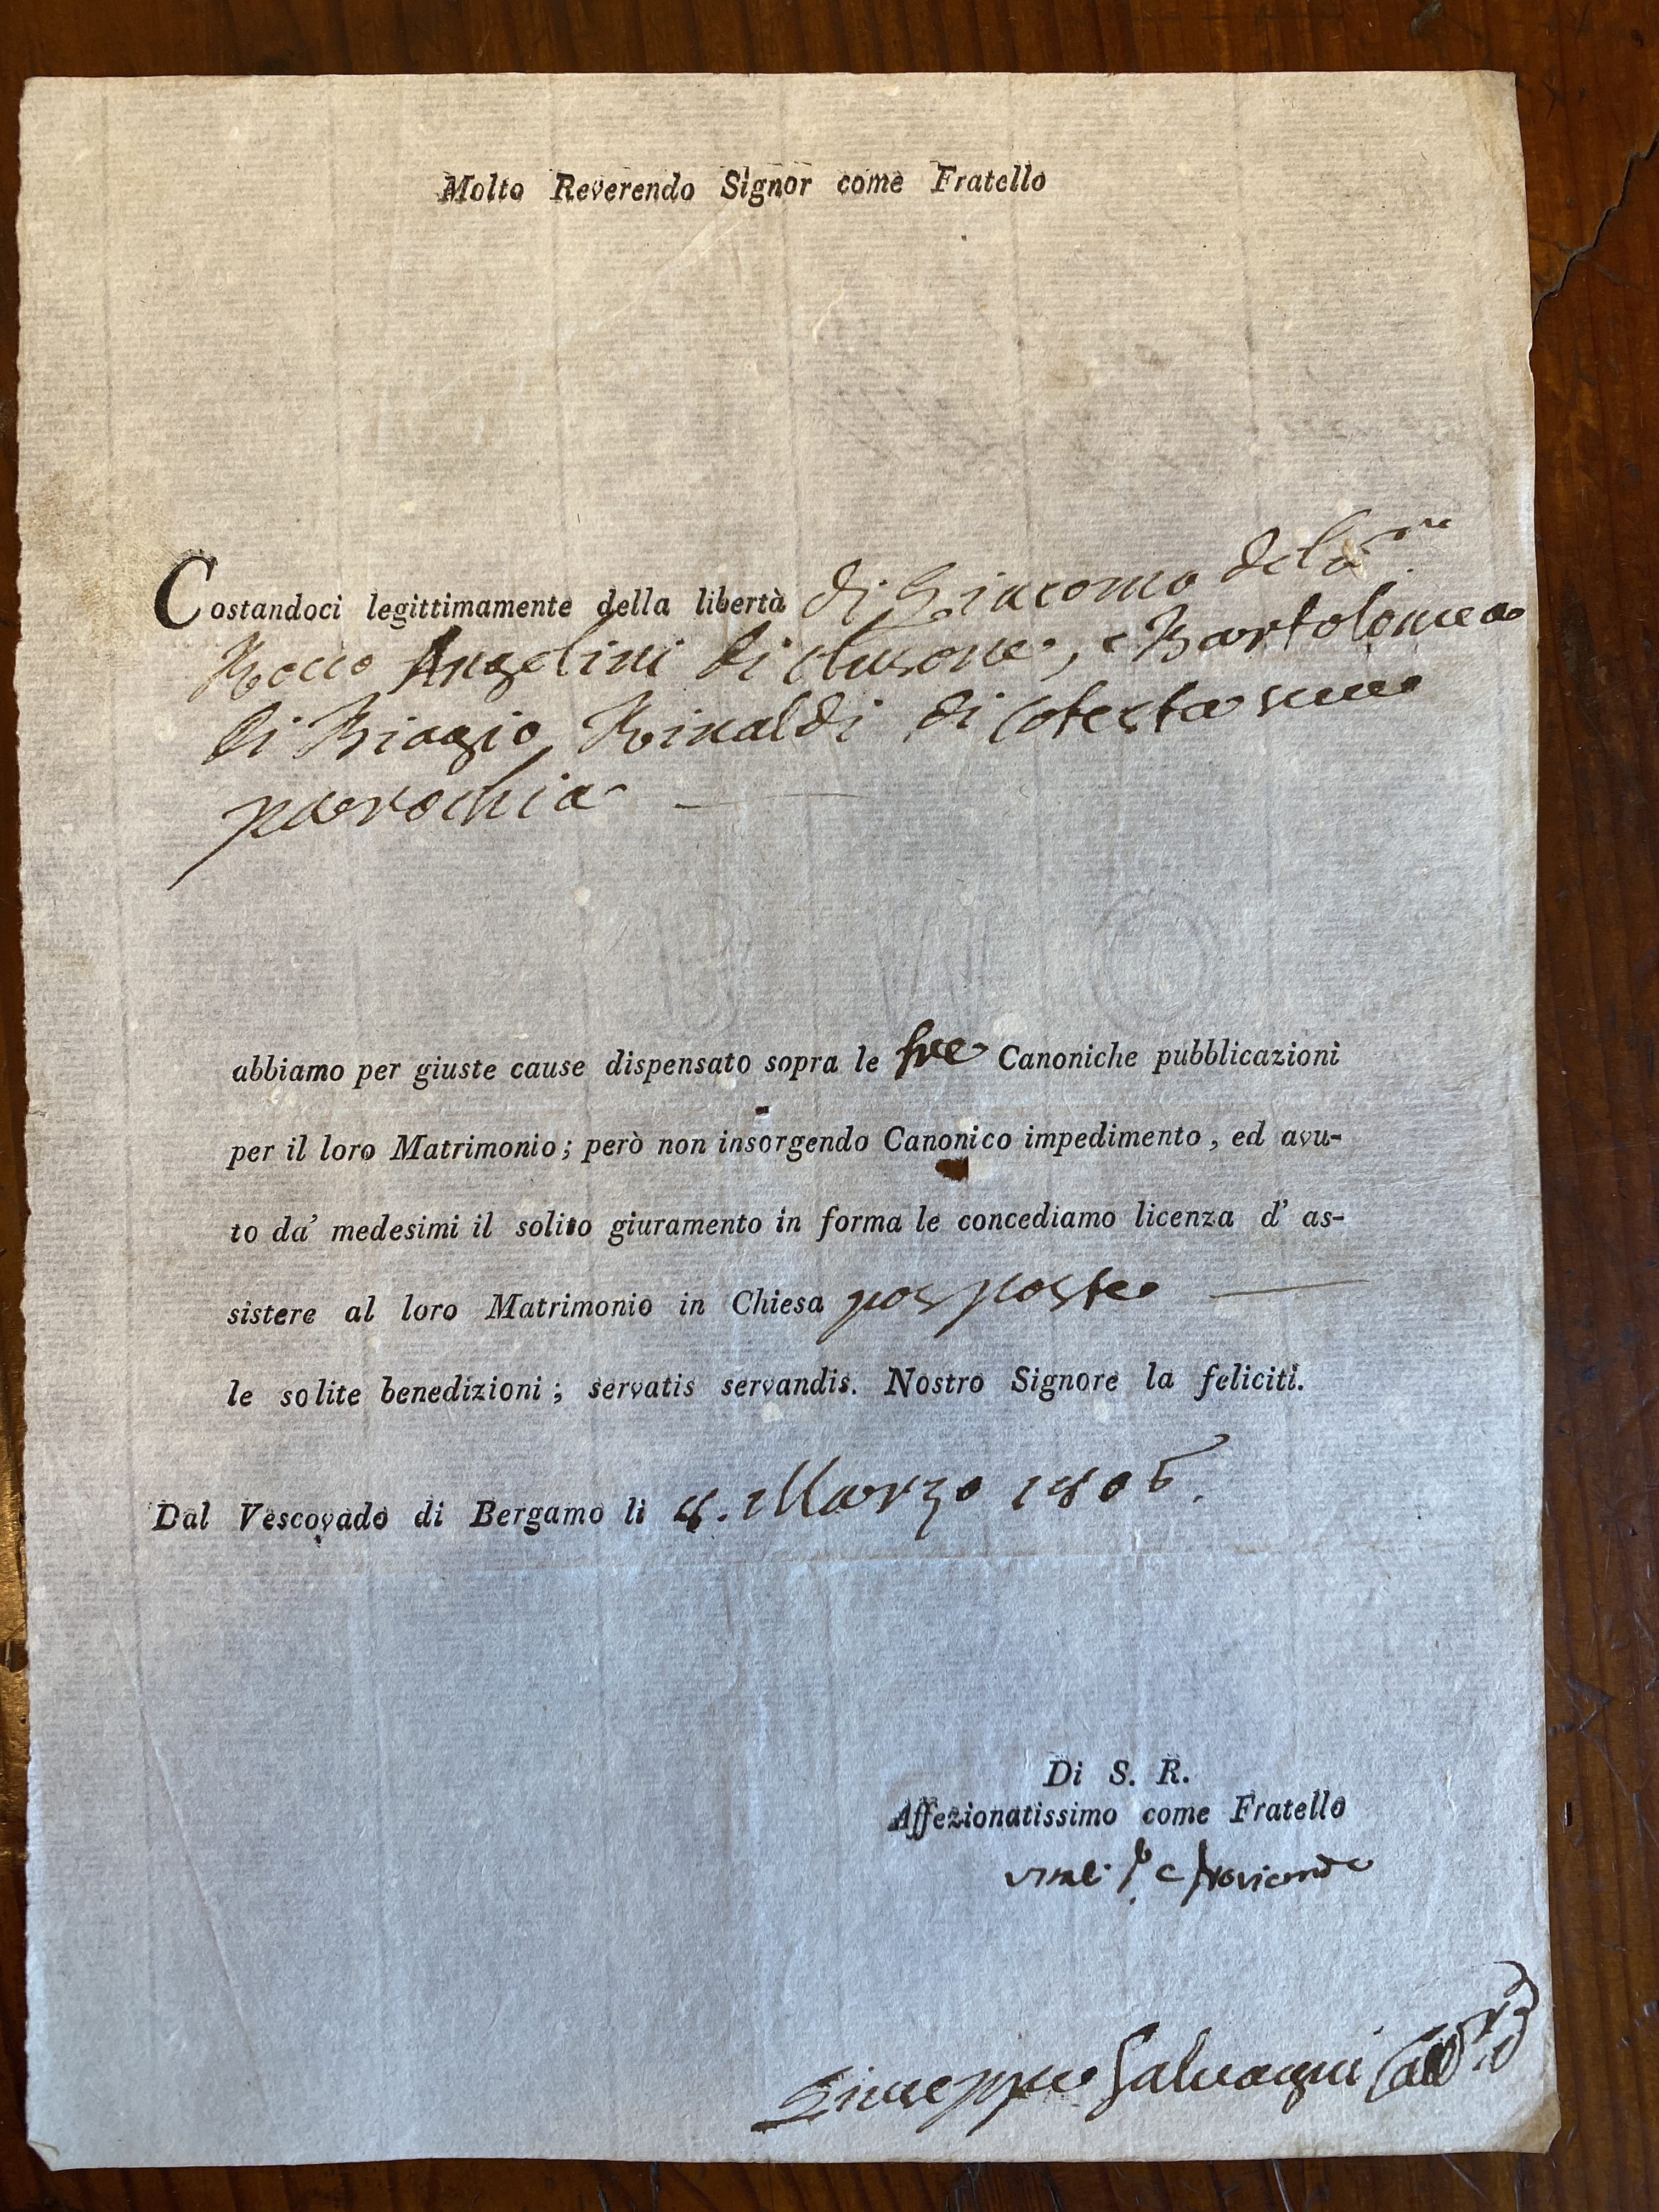 Molto Reverendo Signor come Fratello
Costandoci legittimamente della libertà di Giacomo del
Rocco Angelini di Clusone, e Bartolomea
di Biagio Rinaldi di cotesta sua
parochia
abbiamo per giuste cause dispensato sopra le tre Canoniche pubblicazioni
per il loro Matrimonio; però non insorgendo Canonico impedimento, ed avu-
to da' medesimi il solito giuramento in forma le concediamo licenza d' as-
sistere al loro Matrimonio in Chiesa posposte
le solite benedizioni; servatis servandis. Nostro Signore la feliciti.
Dal Vescovado di Bergamo li 8. Marzo 1806.
Di S. R.
Affezionatissimo come Fratello
Giuseppe Salvagni